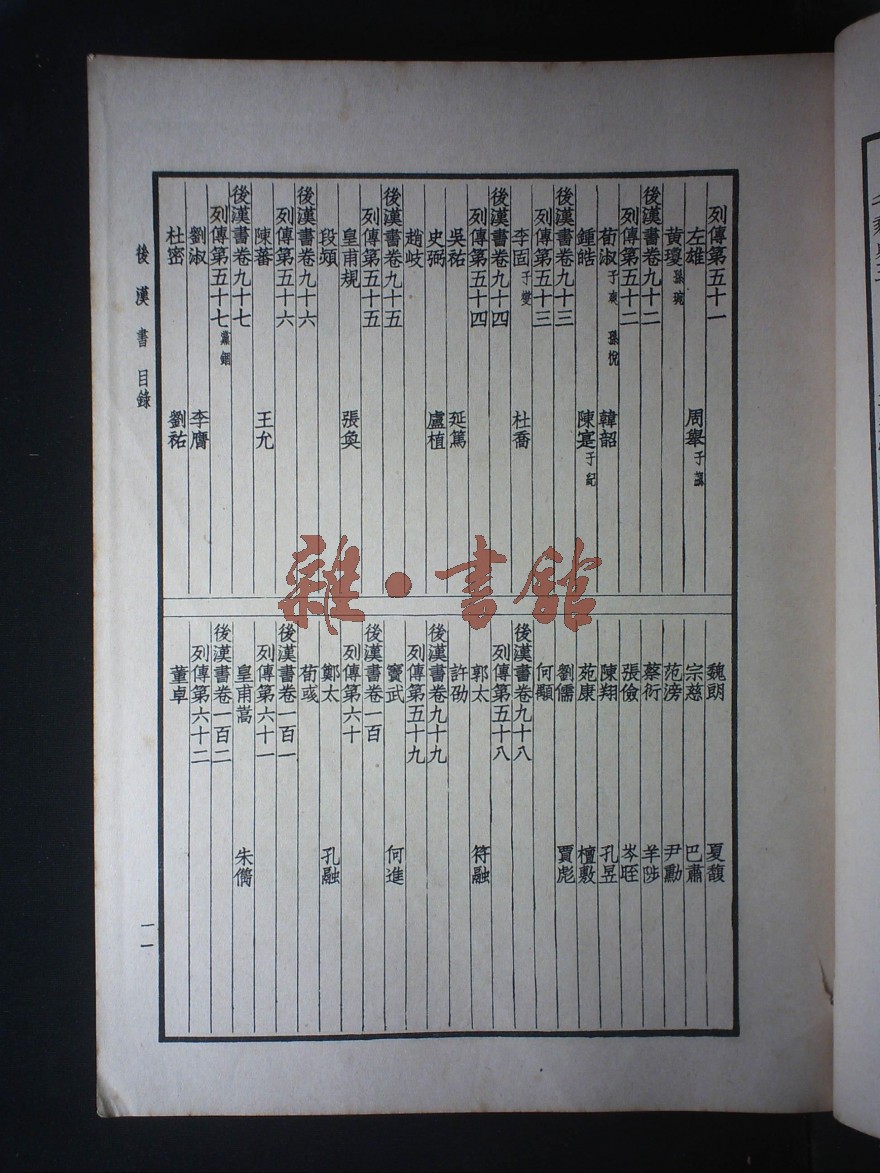 列傳第五十一
左雄 周舉子勰
黃瓊孫琬
後漢書卷九十二
列傳第五十二
荀淑子爽 孫悅 韓韶
鍾皓 陳寔子記
後漢書卷九十三
列傳第五十三
李固子燮 杜喬
後漢書卷九十四
列傳第五十四
吳祐 延篤
史弼 盧植
趙岐
後漢書卷九十五
列傳第五十五
皇甫規 張奐
段熲
後漢書卷九十六
列傳第五十六
陳蕃 王允
後漢書卷九十七
列傳第五十七黨錮
劉淑 李膺
杜密 劉祐
魏朗 夏馥
宗慈 巴肅
范滂 尹勳
蔡衍 羊陟
張儉 岑晊
陳翔 孔昱
苑康 檀敷
劉儒 賈彪
何顒
後漢書卷九十八
列傳第五十八
郭太 符融
許劭
後漢書卷九十九
列傳第五十九
竇武 何進
後漢書卷一百
列傳第六十
鄭太 孔融
荀彧
後漢書卷一百一
列傳第六十一
皇甫嵩 朱儁
後漢書卷一百二
列傳第六十二
董卓
後漢書 目錄
一一
雜·書館